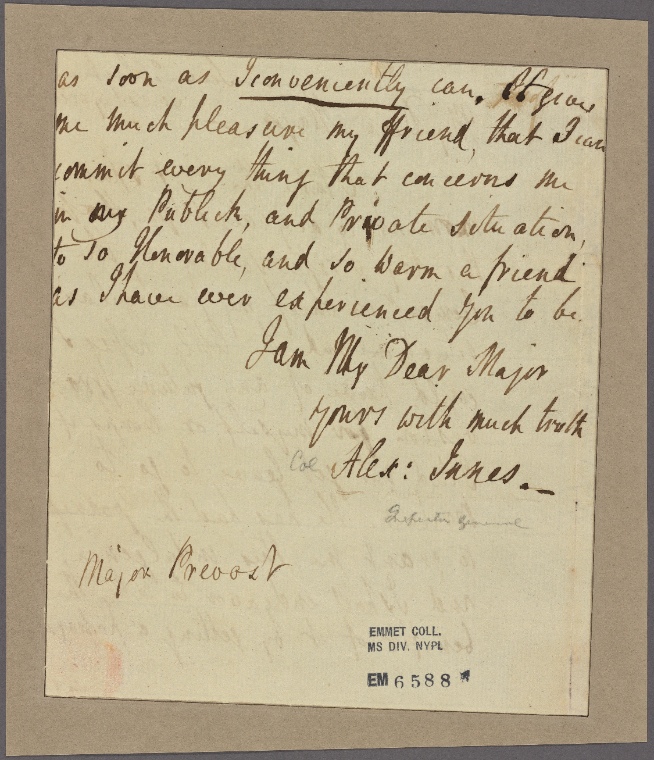 as soon as I conveniently can. It gives
me much pleasure my ffriend, that I can
commit every thing that concerns me
in my Publick, and Private situation,
to so Honorable, and so warm a friend
as I have ever experienced you to be.
I am My Dear Major
yours with much truth
Col Alex: Innes.
Inspector General
Major Prevost
EMMET COLL.
MS DIV. NYPL
EM 6588